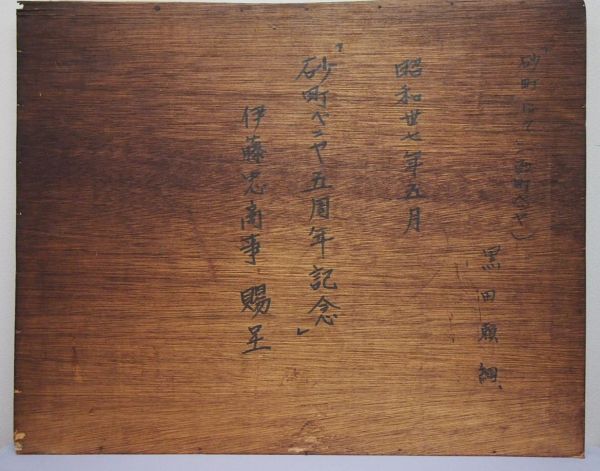 「砂町にて（砂町ベニヤ）
黒田頼綱
昭和卅七年五月
「砂町ベニヤ五周年記念」
伊藤忠商事 賜呈